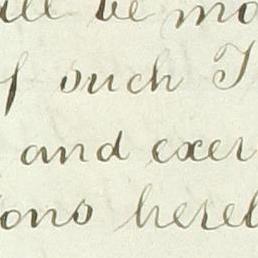 all be mo
f such T
and exer
ons hereb